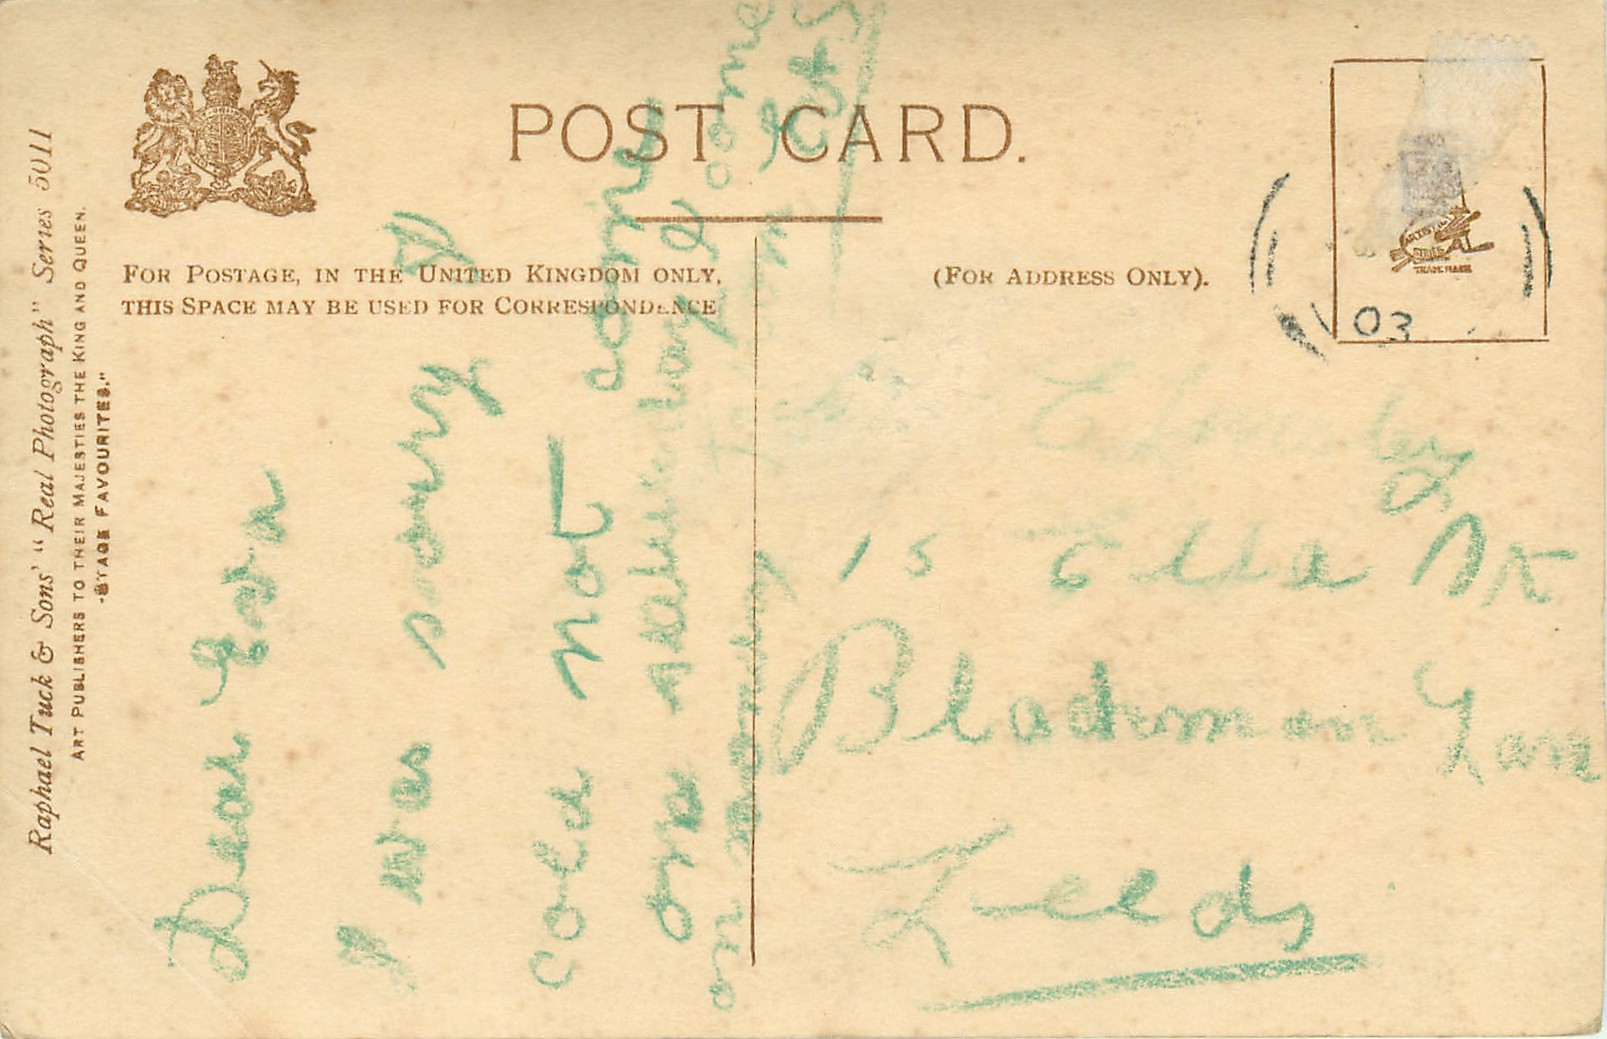 POST CARD.
FOR POSTAGE, IN THE UNITED KINGDOM ONLY,
THIS SPACE MAY BE USED FOR CORRESPONDENCE
(FOR ADDRESS ONLY).
Raphael Tuck & Sons' "Real Photograph" Series 5011
ART PUBLISHERS TO THEIR MAJESTIES THE KING AND QUEEN.
"STAGE FAVOURITES."
TRADE MARK
03
Dear Eva
I was sorry I
cold not come
on
on
come
15 Ella St
Blackman Lane
Leeds